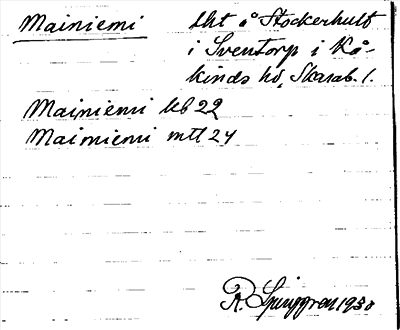 Mainiemi lht å Stockerhult
i Sventorp i Kå-
kinds hd, Skarab. l.
Mainiemi kb 22
Mainiemi mtl 24
R. Ljunggren 1930